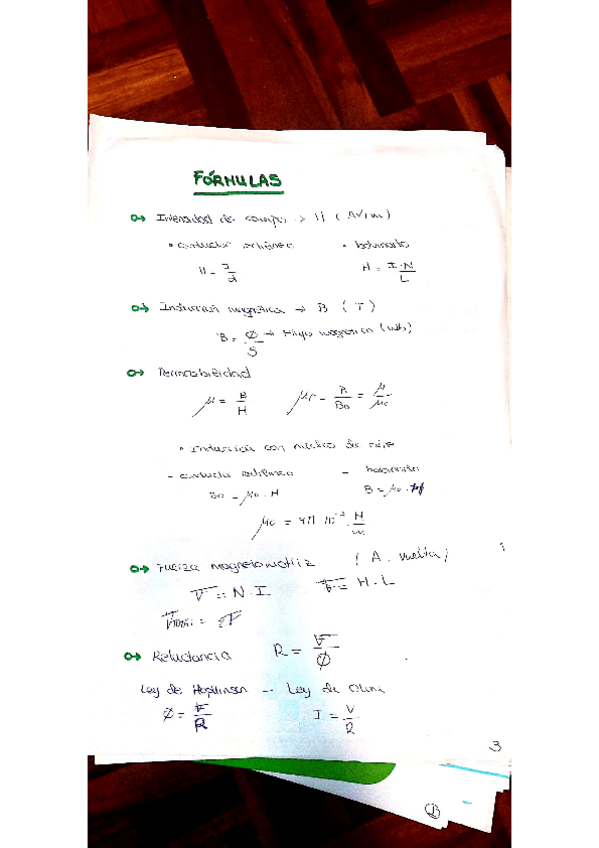 FÓRMULAS
Intensidad de campo → H (AV/m)
• conductor rectilíneo • bobinado
H = I/d H = I·N/L
Inducción magnética → B (T)
B = Ø/S → Flujo magnético (wb)
Permeabilidad
μ = B/H μr = B/Bo = μ/μo
• Inducción con núcleo de aire
- conductor rectilíneo -
Bo = μo · H B = μo ·
μo = 4π 10 · H/m
Fuerza magnetomotriz (A. vuelta)
F = N·I F = H·L
Reluctancia R = F/Ø
Ley de Hopkinson -- Ley de Ohm
Ø = F/R I = V/R
3